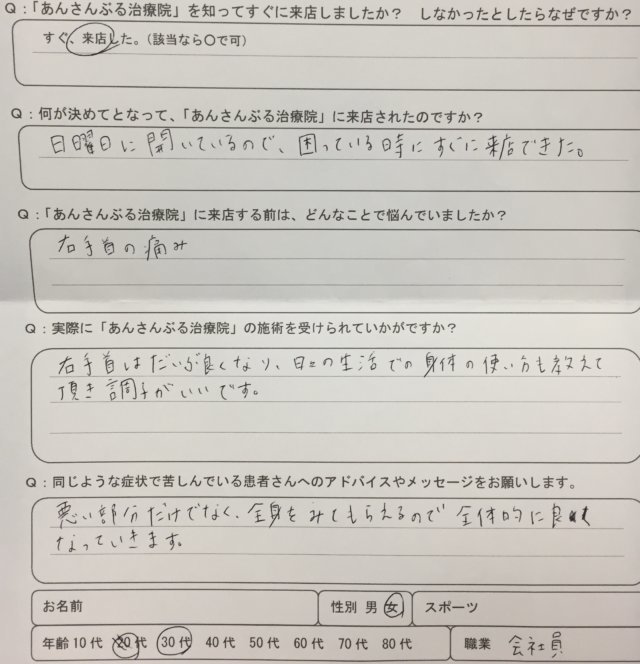 Q：「あんさんぶる治療院」を知ってすぐに来店しましたか？　しなかったとしたらなぜですか？
すぐ、来店した。（該当なら〇で可）
Q：何が決めてとなって、「あんさんぶる治療院」に来店されたのですか？
日曜日に開いているので、困っている時にすぐに来店できた。
Q：「あんさんぶる治療院」に来店する前は、どんなことで悩んでいましたか？
右手首の痛み
Q：実際に「あんさんぶる治療院」の施術を受けられていかがですか？
右手首はだいぶ良くなり、日々の生活での身体の使い方も教えて
頂き調子がいいです。
Q：同じような症状で苦しんでいる患者さんへのアドバイスやメッセージをお願いします。
悪い部分だけでなく、全身をみてもらえるので全体的に良く
なっていきます。
お名前　性別 男 女　スポーツ
年齢 10代 20代 30代 40代 50代 60代 70代 80代　職業 会社員